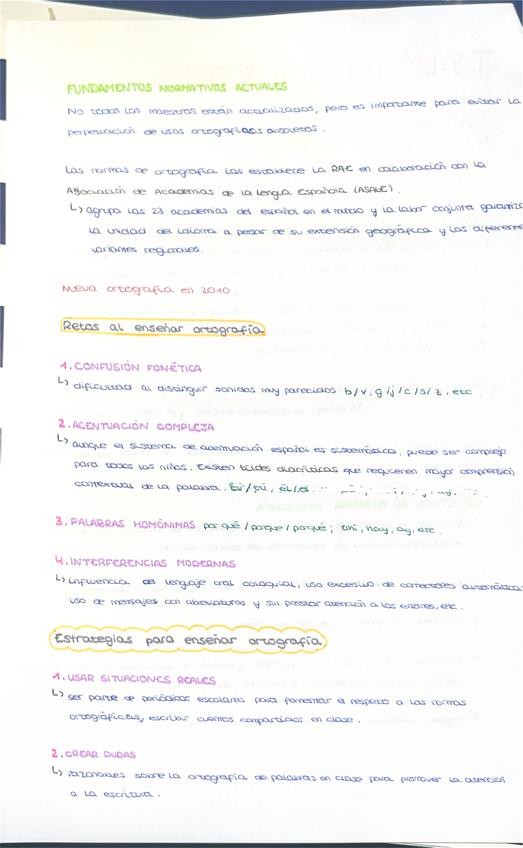 FUNDAMENTOS NORMATIVOS ACTUALES
No todos los maestros están actualizados, pero es importante para evitar la
perpetuación de usos ortográficos obsoletos.
Las normas de ortografía las establece la RAE en colaboración con la
Asociación de Academias de la Lengua Española (ASALE).
↳ agrupa las 23 academias del español en el mundo y la labor conjunta garantiza
la unidad del idioma a pesar de su extensión geográfica y las diferentes
variantes regionales.
Nueva ortografía en 2010.
Retos al enseñar ortografía
1. CONFUSIÓN FONÉTICA
↳ dificultad al distinguir sonidos muy parecidos b/v, g/j/c/s/z, etc.
2. ACENTUACIÓN COMPLEJA
↳ aunque el sistema de acentuación español es sistemático, puede ser complejo
para todos los niños. Existen tildes diacríticas que requieren mayor comprensión
contextual de la palabra.
3. PALABRAS HOMÓNIMAS por qué/porque/porqué; ahí, hay, ay, etc.
4. INTERFERENCIAS MODERNAS
↳ influencia del lenguaje oral coloquial, uso excesivo de correctores automáticos
uso de mensajes con abreviaturas y sin prestar atención a los errores, etc.
Estrategias para enseñar ortografía
1. USAR SITUACIONES REALES
↳ ser parte de periódicos escolares para fomentar el respeto a las normas
ortográficas, escribir cuentos compartidos en clase.
2. CREAR DUDAS
↳ razonables sobre la ortografía de palabras en clase para promover la atención
a la escritura.